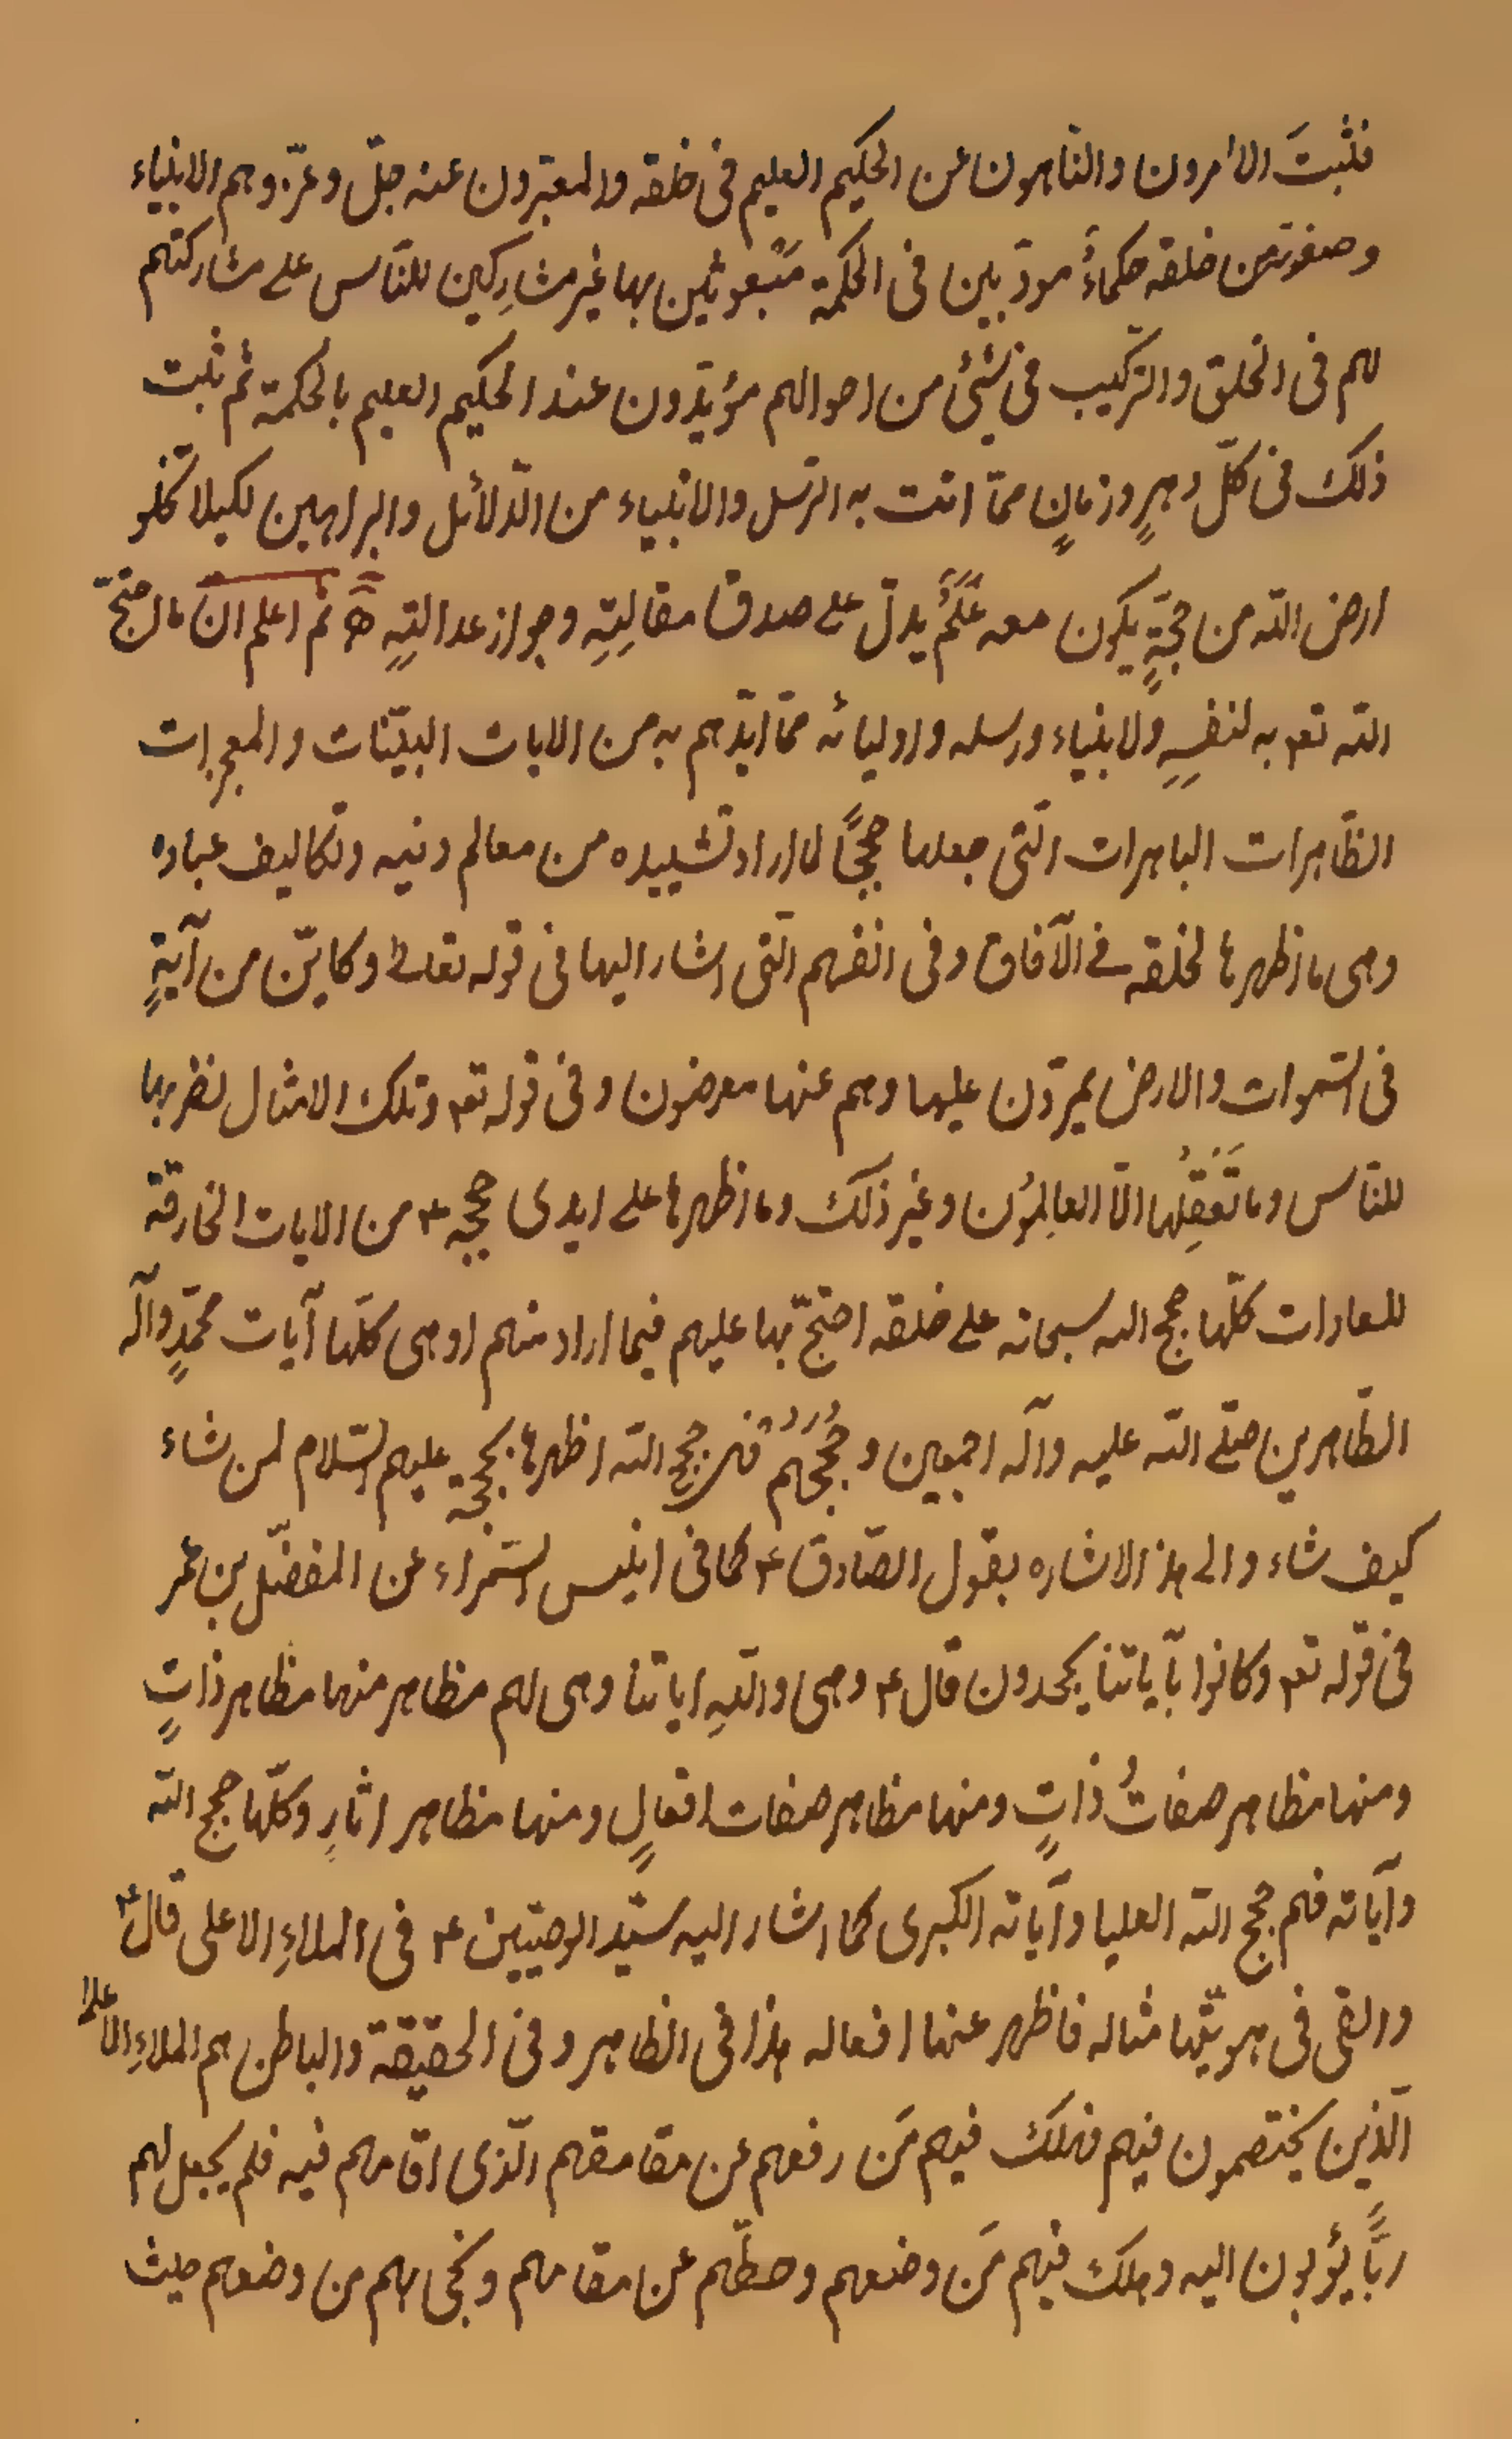 فثبتَ الأمرون والنّاهون عن الحكيم العليم فى خلقه والمعبّرون عنه جلّ وعزّ وهم الانبياء
وصفوته من خلقه حكماءُ مودّبين فى الحكمة مَبعوثين بها غير مشارِكين للنّاس على مشاركتهم
لهم فى الخلق والتّركيب فى شئ من احوالهم مؤيّدون عند الحكيم العليم بالحكمة ثم ثبت
ذلك فى كلّ دهرٍ وزمانٍ ممّا اتت به الرّسل والانبياء من الدّلائل والبراهين لكيلا تخلو
ارض الله من حجّةٍ يكون معه عَلَمٌ يدلّ على صدق مقالتِهِ وجواز عدالتِهِ ثم اعلم انّ ما احتجّ
الله تعه به لنفسِهِ ولانبياء ورسله واوليائه ممّا ايّدهم به من الايات البيّنات والمعجزات
الظّاهرات الباهرات الّتى جعلها حججًا لما اراد تشييده من معالم دنيه وتكاليف عباده
وهى ما اظهرها لخلقه فے الآفاق وفى انفسهم الّتى اشار اليها فى قوله تعالے وكايّن من آيةٍ
فى السّموات والارض يمرّون عليها وهم عنها معرضون وفى قوله تعه وتلك الامثال نضربها
للنّاس وما تَعقِلُها الّا العالِمُون وغير ذلك وما اظهرها على ايدى حججه ع من الايات الخارقة
للعادات كلّها حجج الله سبحانه على خلقه احتجّ بها عليهم فيما اراد منهم اوهى كلّها آيات محمّدٍ وآله
الطّاهرين صلّے الله عليه وآله اجمعين وحُجَجُهُم فهى حجج الله اظهرها بحججه عليهم السّلام لمن شاء
كيف شاء والى هذا الاشاره بقول الصّادق ع كما فى انيس السّمراء عن المفضّل بن عمر
فى قوله تعه وكانوا بآياتنا يجحدون قال ع وهى واللهِ اياتنا وهى لهم مظاهر منها مظاهر ذاتٍ
ومنها مظاهر صفاتُ ذاتٍ ومنها مظاهر صفات افعالٍ ومنها مظاهر اثارٍ وكلّها حجج الله
وآياته فهم حجج الله العليا وآياته الكبرى كما اشار اليه سيّد الوصيّين ع فى الملاءِ الاعلى قال ع
والقى فى هويّتها مثاله فاظهر عنها افعاله هذا فى الظاهر وفى الحقيقة والباطن هم الملاءِ الاعلى
الّذين يختصمون فيهم فهلك فيهم مَن رفعهم عن مقامهم الّذى اقامهم فيه فلم يجعل لهم
ربًّا يؤبون اليه وهلك فيهم مَن وضعهم وحطّهم عن مقامهم ونجى بهم من وضعهم حيث